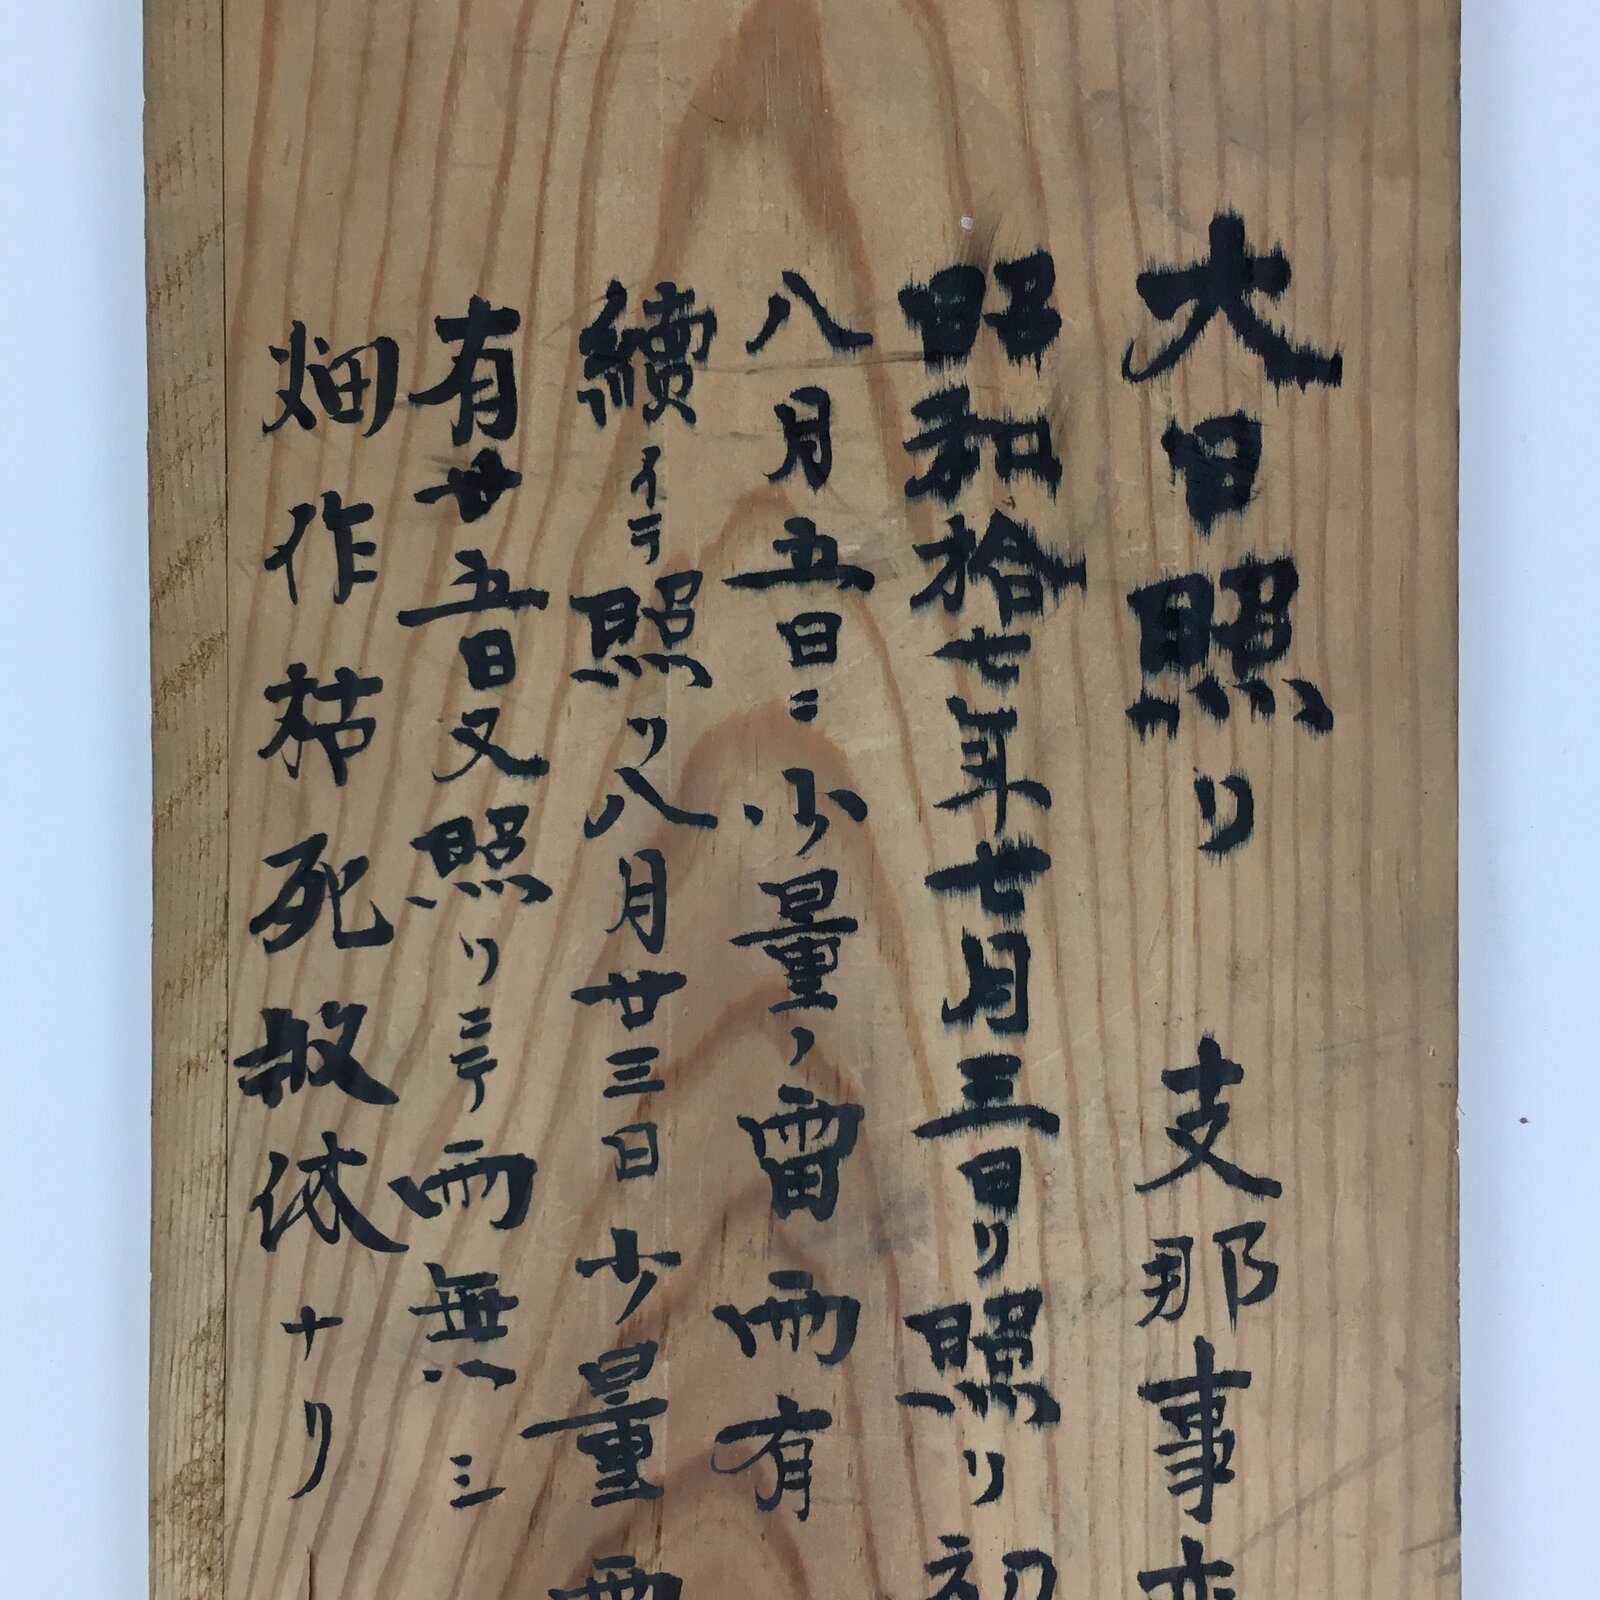 大日照り 支那事変
昭和拾七年七月三日リ照リ初
八月五日ニ少量ノ雷雨有
續イテ照リ八月廿三日少量雨
有廿五日又照リ三テ雨無シ
畑作枯死 依ナリ